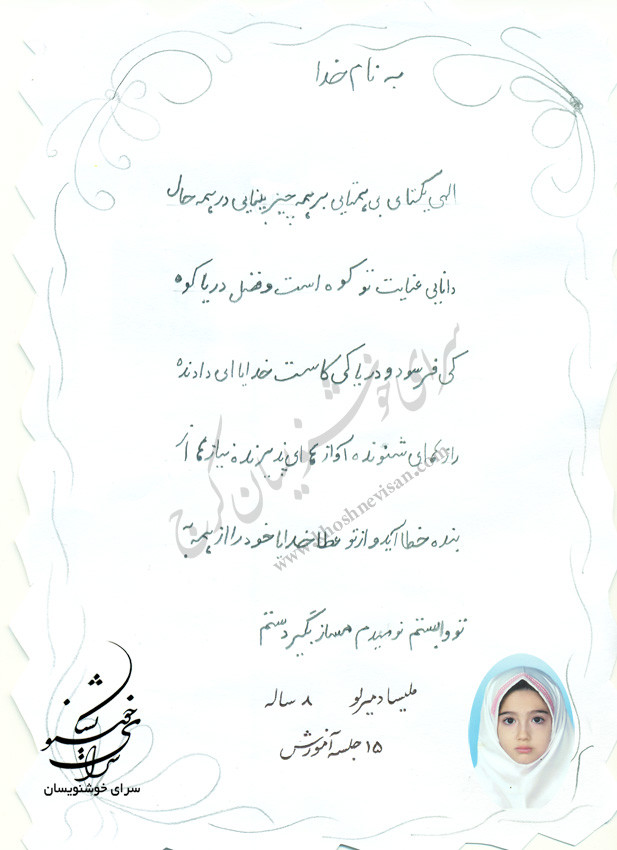 به نام خدا
الهی یکتای بی همتایی بر همه چیز بینایی در همه حال
دانایی عنایت تو کوه است و فضل دریا کوه
کی فرسود و دریا کی کاست خدایا ای داننده
رازهای شنونده آوازهای پذیرنده نیازها از
بنده خطا آید و از تو عطا خدایا خود را از همه به
تو وابستم نومیدم مساز بگیر دستم
ملیسا دمیرلو ۸ ساله
۱۵ جلسه آموزش
سرای خوشنویسان
سرای خوشنویسان کرج
www.khoshnevisan.com